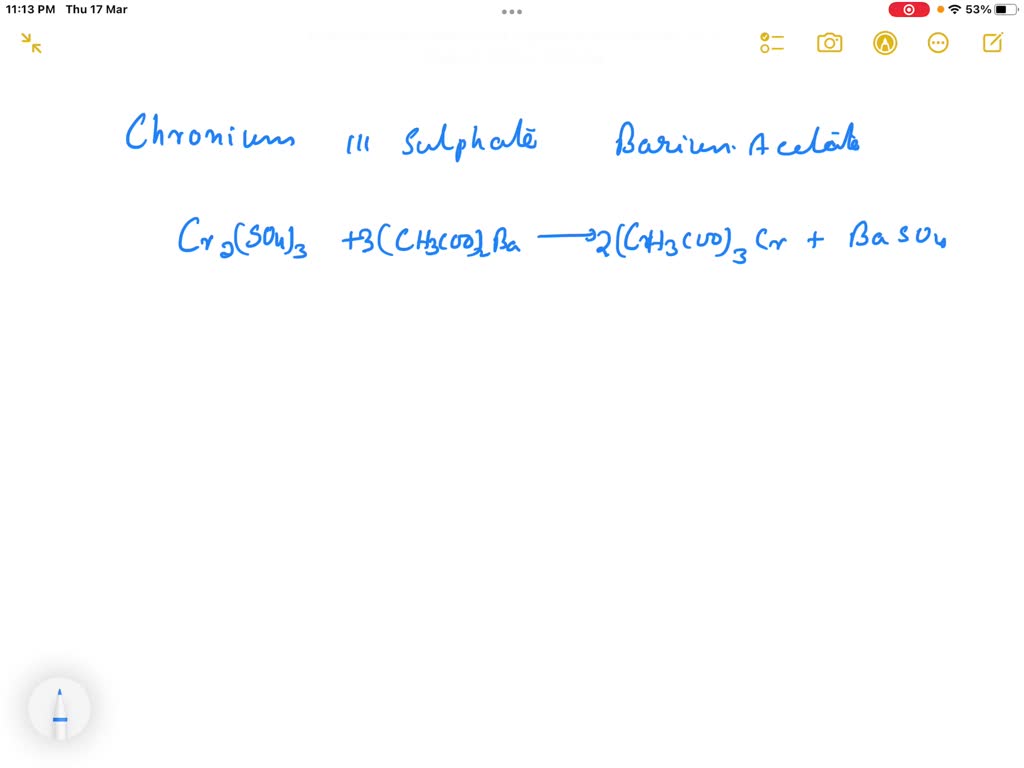 11:13 PM Thu 17 Mar 53%
Chronium III Sulphate Barium Acetate
Cr2(SO4)3 +3(CH3COO)2Ba → 2(CH3COO)3Cr + BaSO4